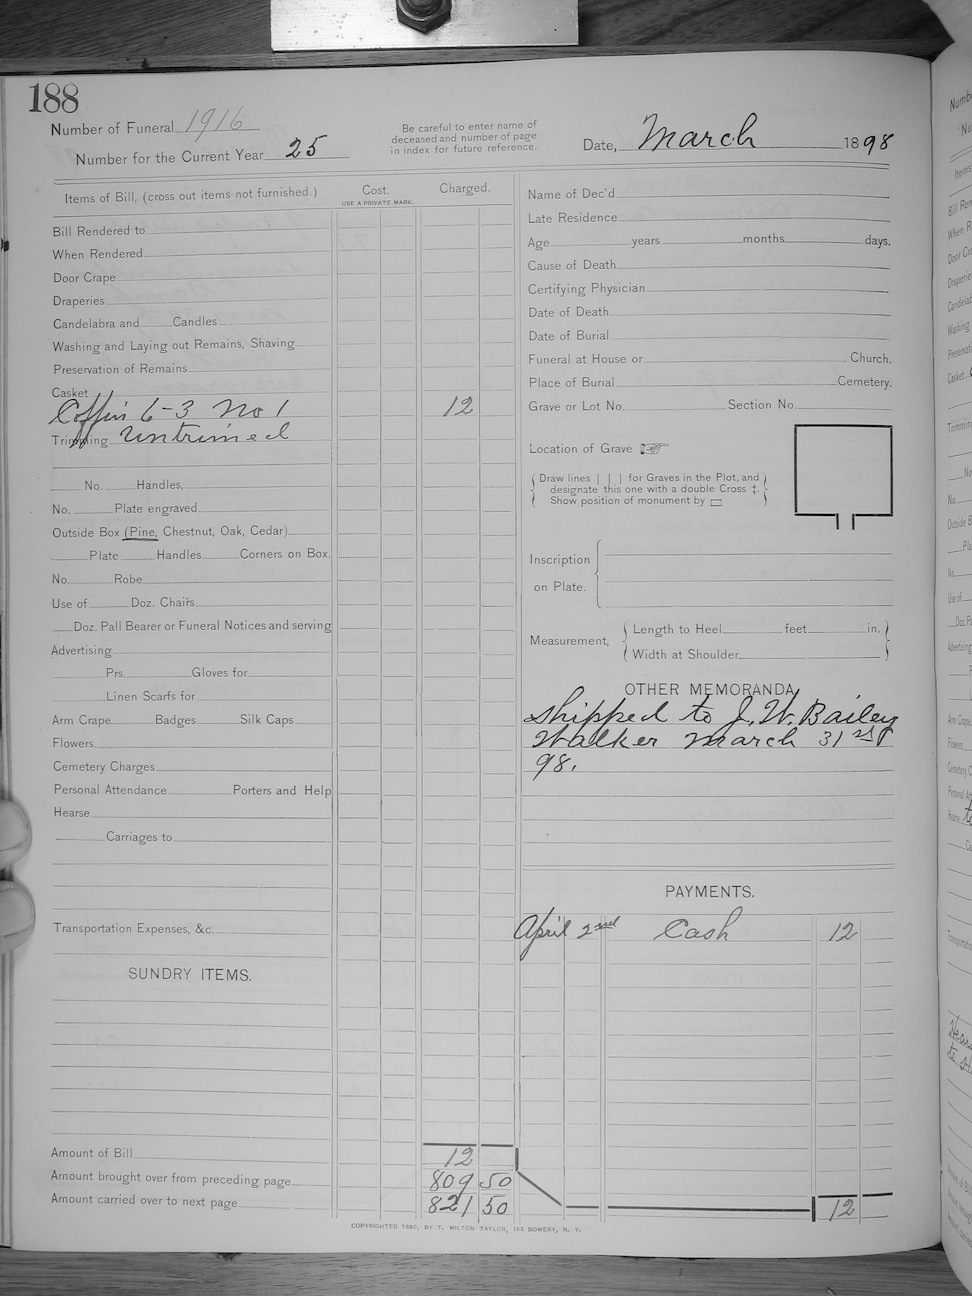 188
Number of Funeral 1916
Number for the Current Year 25
Be careful to enter name of
deceased and number of page
in index for future reference.
Date, March 1898
Items of Bill, (cross out items not furnished.) Cost. Charged.
USE A PRIVATE MARK.
Bill Rendered to
When Rendered
Door Crape
Draperies
Candelabra and Candles
Washing and Laying out Remains, Shaving
Preservation of Remains
Casket
Coffin 6-3 No 1 12
Trimming Untrimed
No. Handles,
No. Plate engraved
Outside Box (Pine, Chestnut, Oak, Cedar)
Plate Handles Corners on Box.
No. Robe
Use of Doz. Chairs
Doz. Pall Bearer or Funeral Notices and serving
Advertising
Prs. Gloves for
Linen Scarfs for
Arm Crape Badges Silk Caps
Flowers
Cemetery Charges
Personal Attendance Porters and Help
Hearse
Carriages to
Transportation Expenses, &c.
SUNDRY ITEMS.
Amount of Bill 12
Amount brought over from preceding page 809 50
Amount carried over to next page 821 50
Name of Dec'd
Late Residence
Age years months days.
Cause of Death
Certifying Physician
Date of Death
Date of Burial
Funeral at House or Church.
Place of Burial Cemetery.
Grave or Lot No. Section No.
Location of Grave ☞
Draw lines | | | for Graves in the Plot, and
designate this one with a double Cross ‡.
Show position of monument by ▭
Inscription
on Plate.
Measurement,
Length to Heel feet in.
Width at Shoulder
OTHER MEMORANDA
Shipped to J. W. Bailey
Walker March 31st
98.
PAYMENTS.
April 2nd Cash 12
12
COPYRIGHTED 1890, BY T. MILTON TAYLOR, 163 BOWERY, N. Y.